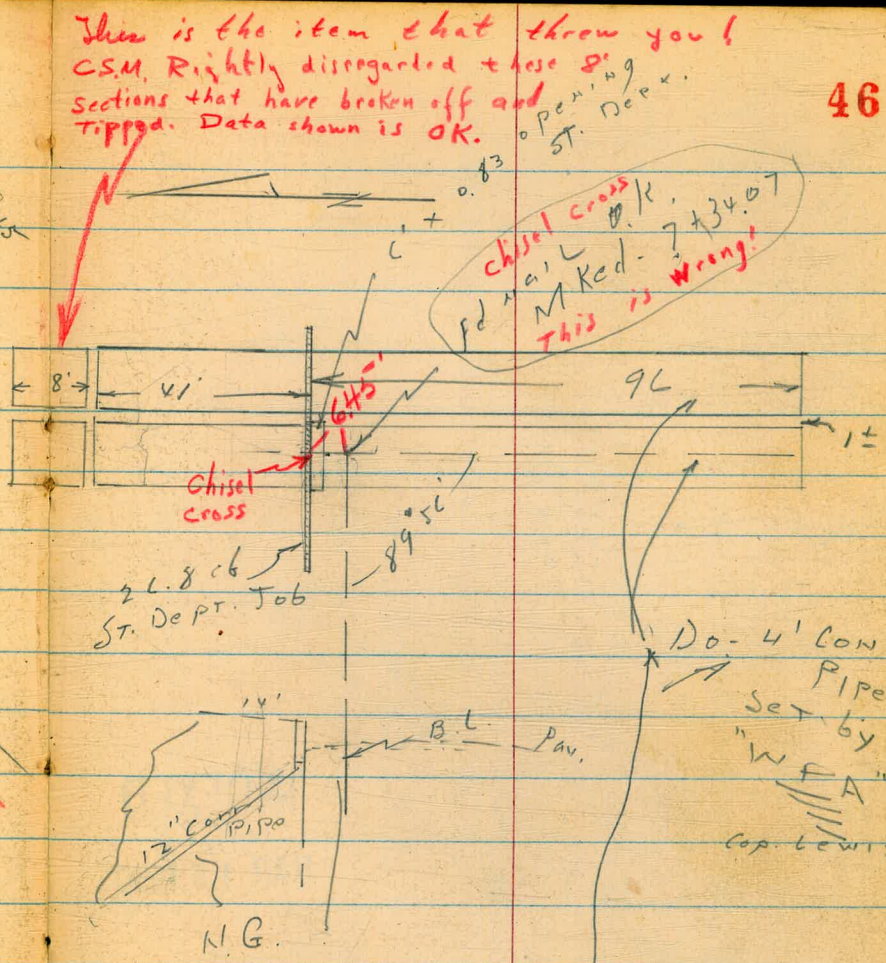 This is the item that threw you!
C.S.M. Rightly disregarded these 8'
sections that have broken off and
Tipped. Data shown is OK.
46
0.83 opening
ST. Dept.
chisel cross
fd nail O.K.
MKed - 7+34.07
This is wrong!
8'
41'
6.45'
1±
Chisel
cross
ST. Dept. Job
Do - 4' Con
Pipe
Set by
"W F A"
14'
B.L.
Pav.
12" Con
Pipe
N.G.
Cop. Lewi